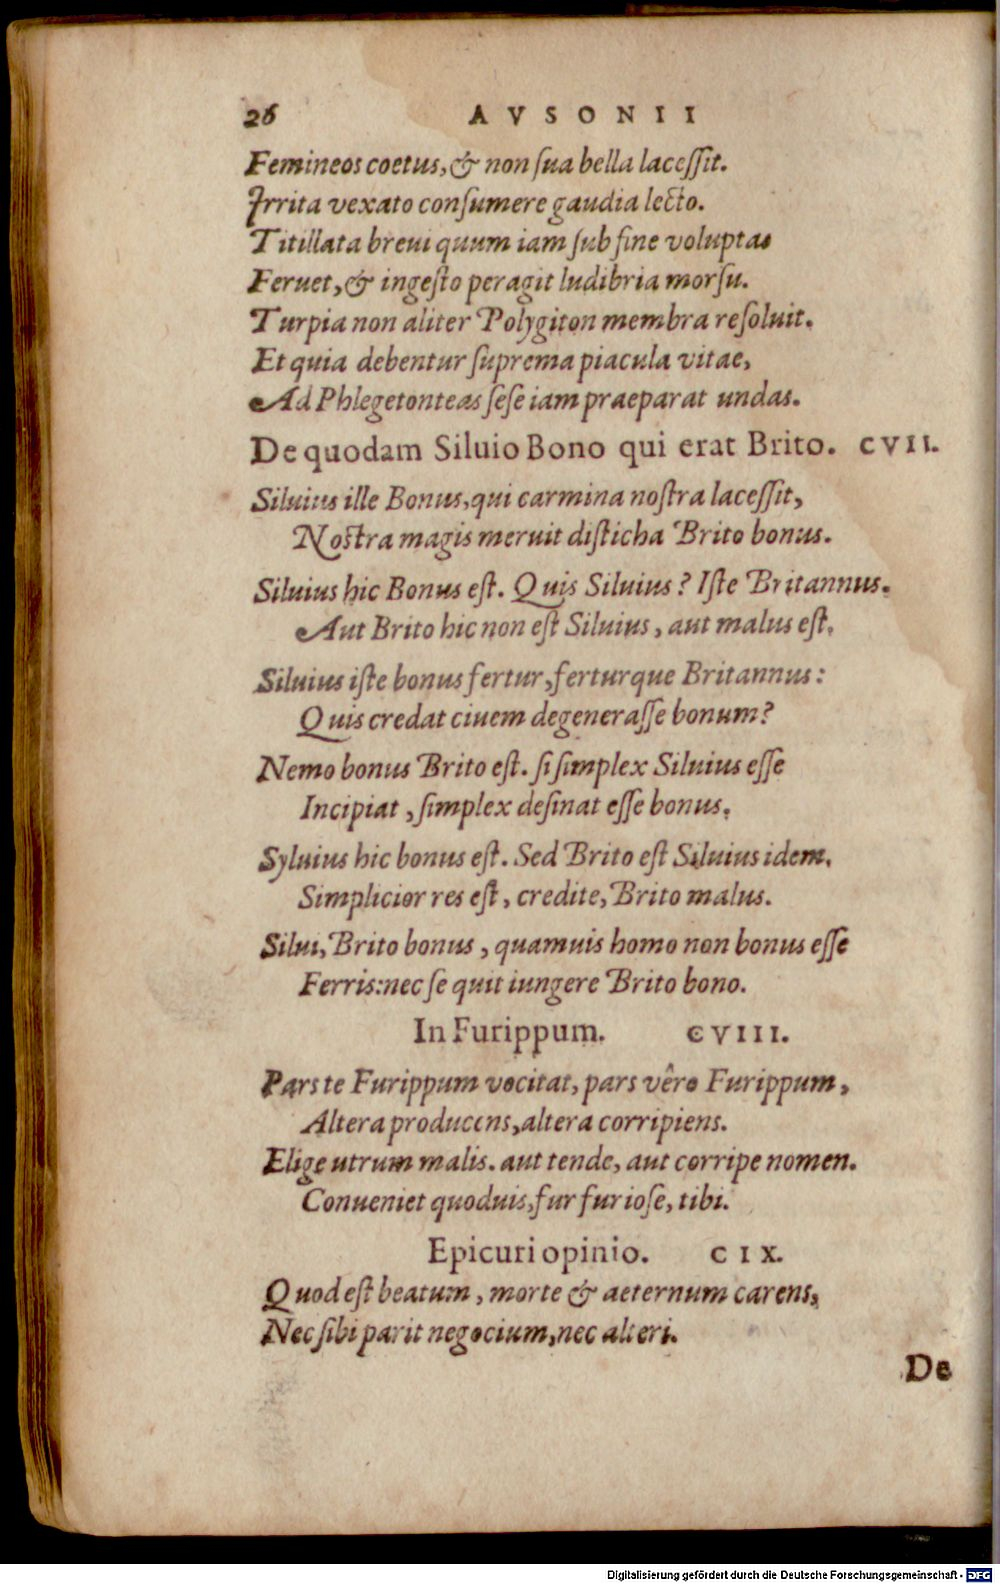 26 AVSONII
Femineos coetus, & non ſua bella laceſſit.
Irrita vexato conſumere gaudia lecto.
Titillata breui quum iam ſub fine voluptas
Feruet, & ingeſto peragit ludibria morſu.
Turpia non aliter Polygiton membra reſoluit.
Et quia debentur ſuprema piacula vitae,
Ad Phlegetonteas ſeſe iam praeparat undas.
De quodam Siluio Bono qui erat Brito. CVII.
Siluius ille Bonus, qui carmina noſtra laceſſit,
Noſtra magis meruit diſticha Brito bonus.
Siluius hic Bonus eſt. Quis Siluius? Iſte Britannus.
Aut Brito hic non eſt Siluius, aut malus eſt.
Siluius iſte bonus fertur, ferturque Britannus:
Quis credat ciuem degeneraſſe bonum?
Nemo bonus Brito eſt. ſi ſimplex Siluius eſſe
Incipiat, ſimplex deſinat eſſe bonus.
Syluius hic bonus eſt. Sed Brito eſt Siluius idem.
Simplicior res eſt, credite, Brito malus.
Silui, Brito bonus, quamuis homo non bonus eſſe
Ferris: nec ſe quit iungere Brito bono.
In Furippum. CVIII.
Pars te Furippum vocitat, pars vêro Furippum,
Altera producens, altera corripiens.
Elige utrum malis. aut tende, aut corripe nomen.
Conueniet quoduis, fur furioſe, tibi.
Epicuri opinio. CIX.
Quod eſt beatum, morte & aeternum carens,
Nec ſibi parit negocium, nec alteri.
De
Digitalisierung gefördert durch die Deutsche Forschungsgemeinschaft - DFG